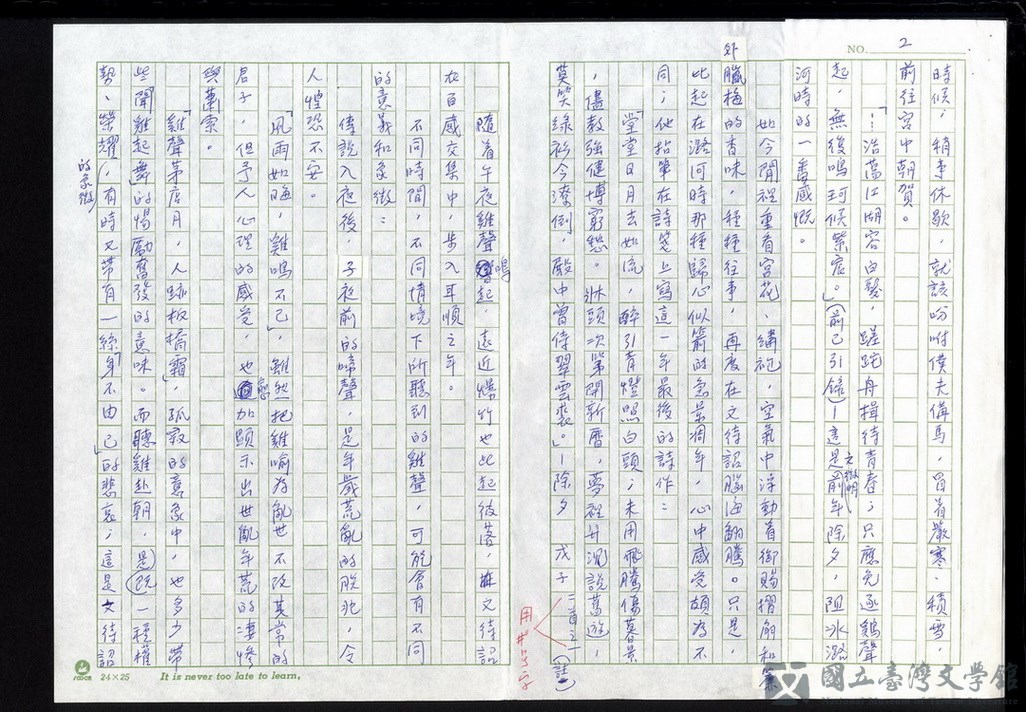 NO. 2
時候，稍事休歇，就該吩咐僕夫備馬，冒着嚴寒、積雪，
前往宮中朝賀。
「…浩蕩江湖容白髮，蹉跎舟楫待青春；只應免逐鷄聲
起，無復鳴珂候紫宸。」(前已引錄)—這是文徵明前年除夕，阻冰潞
河時的一番感慨。
如今閒裡重看宮花、繡袍，空氣中浮動着御賜摺扇和篆
外臘梅的香味，種種往事，再度在文待詔腦海翻騰。只是，
比起在潞河時那種歸心似箭的急景凋年，心中感受頗為不
同；他拈筆在詩箋上寫這一年最後的詩作：
「堂堂日月去如流，醉引青燈照白頭；未用飛騰傷暮景
，儘教強健博窮愁。牀頭次第開新曆，夢裡升沉說舊遊，
莫笑綠衫今潦倒，殿中曾侍翠雲裘。」—除夕 戊子 二首之一(註一)
用#5字
隨着午夜雞聲鳴起，遠近爆竹也此起彼落，文待詔
在百感交集中，步入耳順之年。
不同時間，不同情境下所聽到的雞聲，可能會有不同
的意義和象徵：
傳說入夜後，子夜前的啼聲，是年歲荒亂的朕兆，令
人惶恐不安。
「風雨如晦，雞鳴不已」，雖然把雞喻為亂世不改其常的
君子，但予人心理的感受，也愈加顯示出世亂年荒的淒慘
與蕭索。
「雞聲茅店月，人跡板橋霜」，孤寂的意象中，也多少帶
些「聞雞起舞」的惕勵奮發的意味。而聽雞赴朝，是(既)一種權
勢、榮耀的象徵，有時又帶有一絲「身不由己」的悲哀；這是文待詔
SDCR 24×25 It is never too late to learn,
國立臺灣文學館